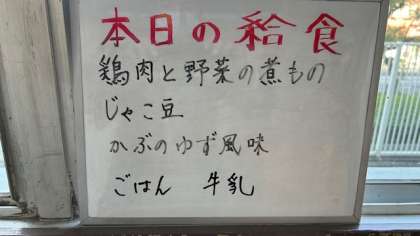 本日の給食
鶏肉と野菜の煮もの
じゃこ豆
かぶのゆず風味
ごはん 牛乳